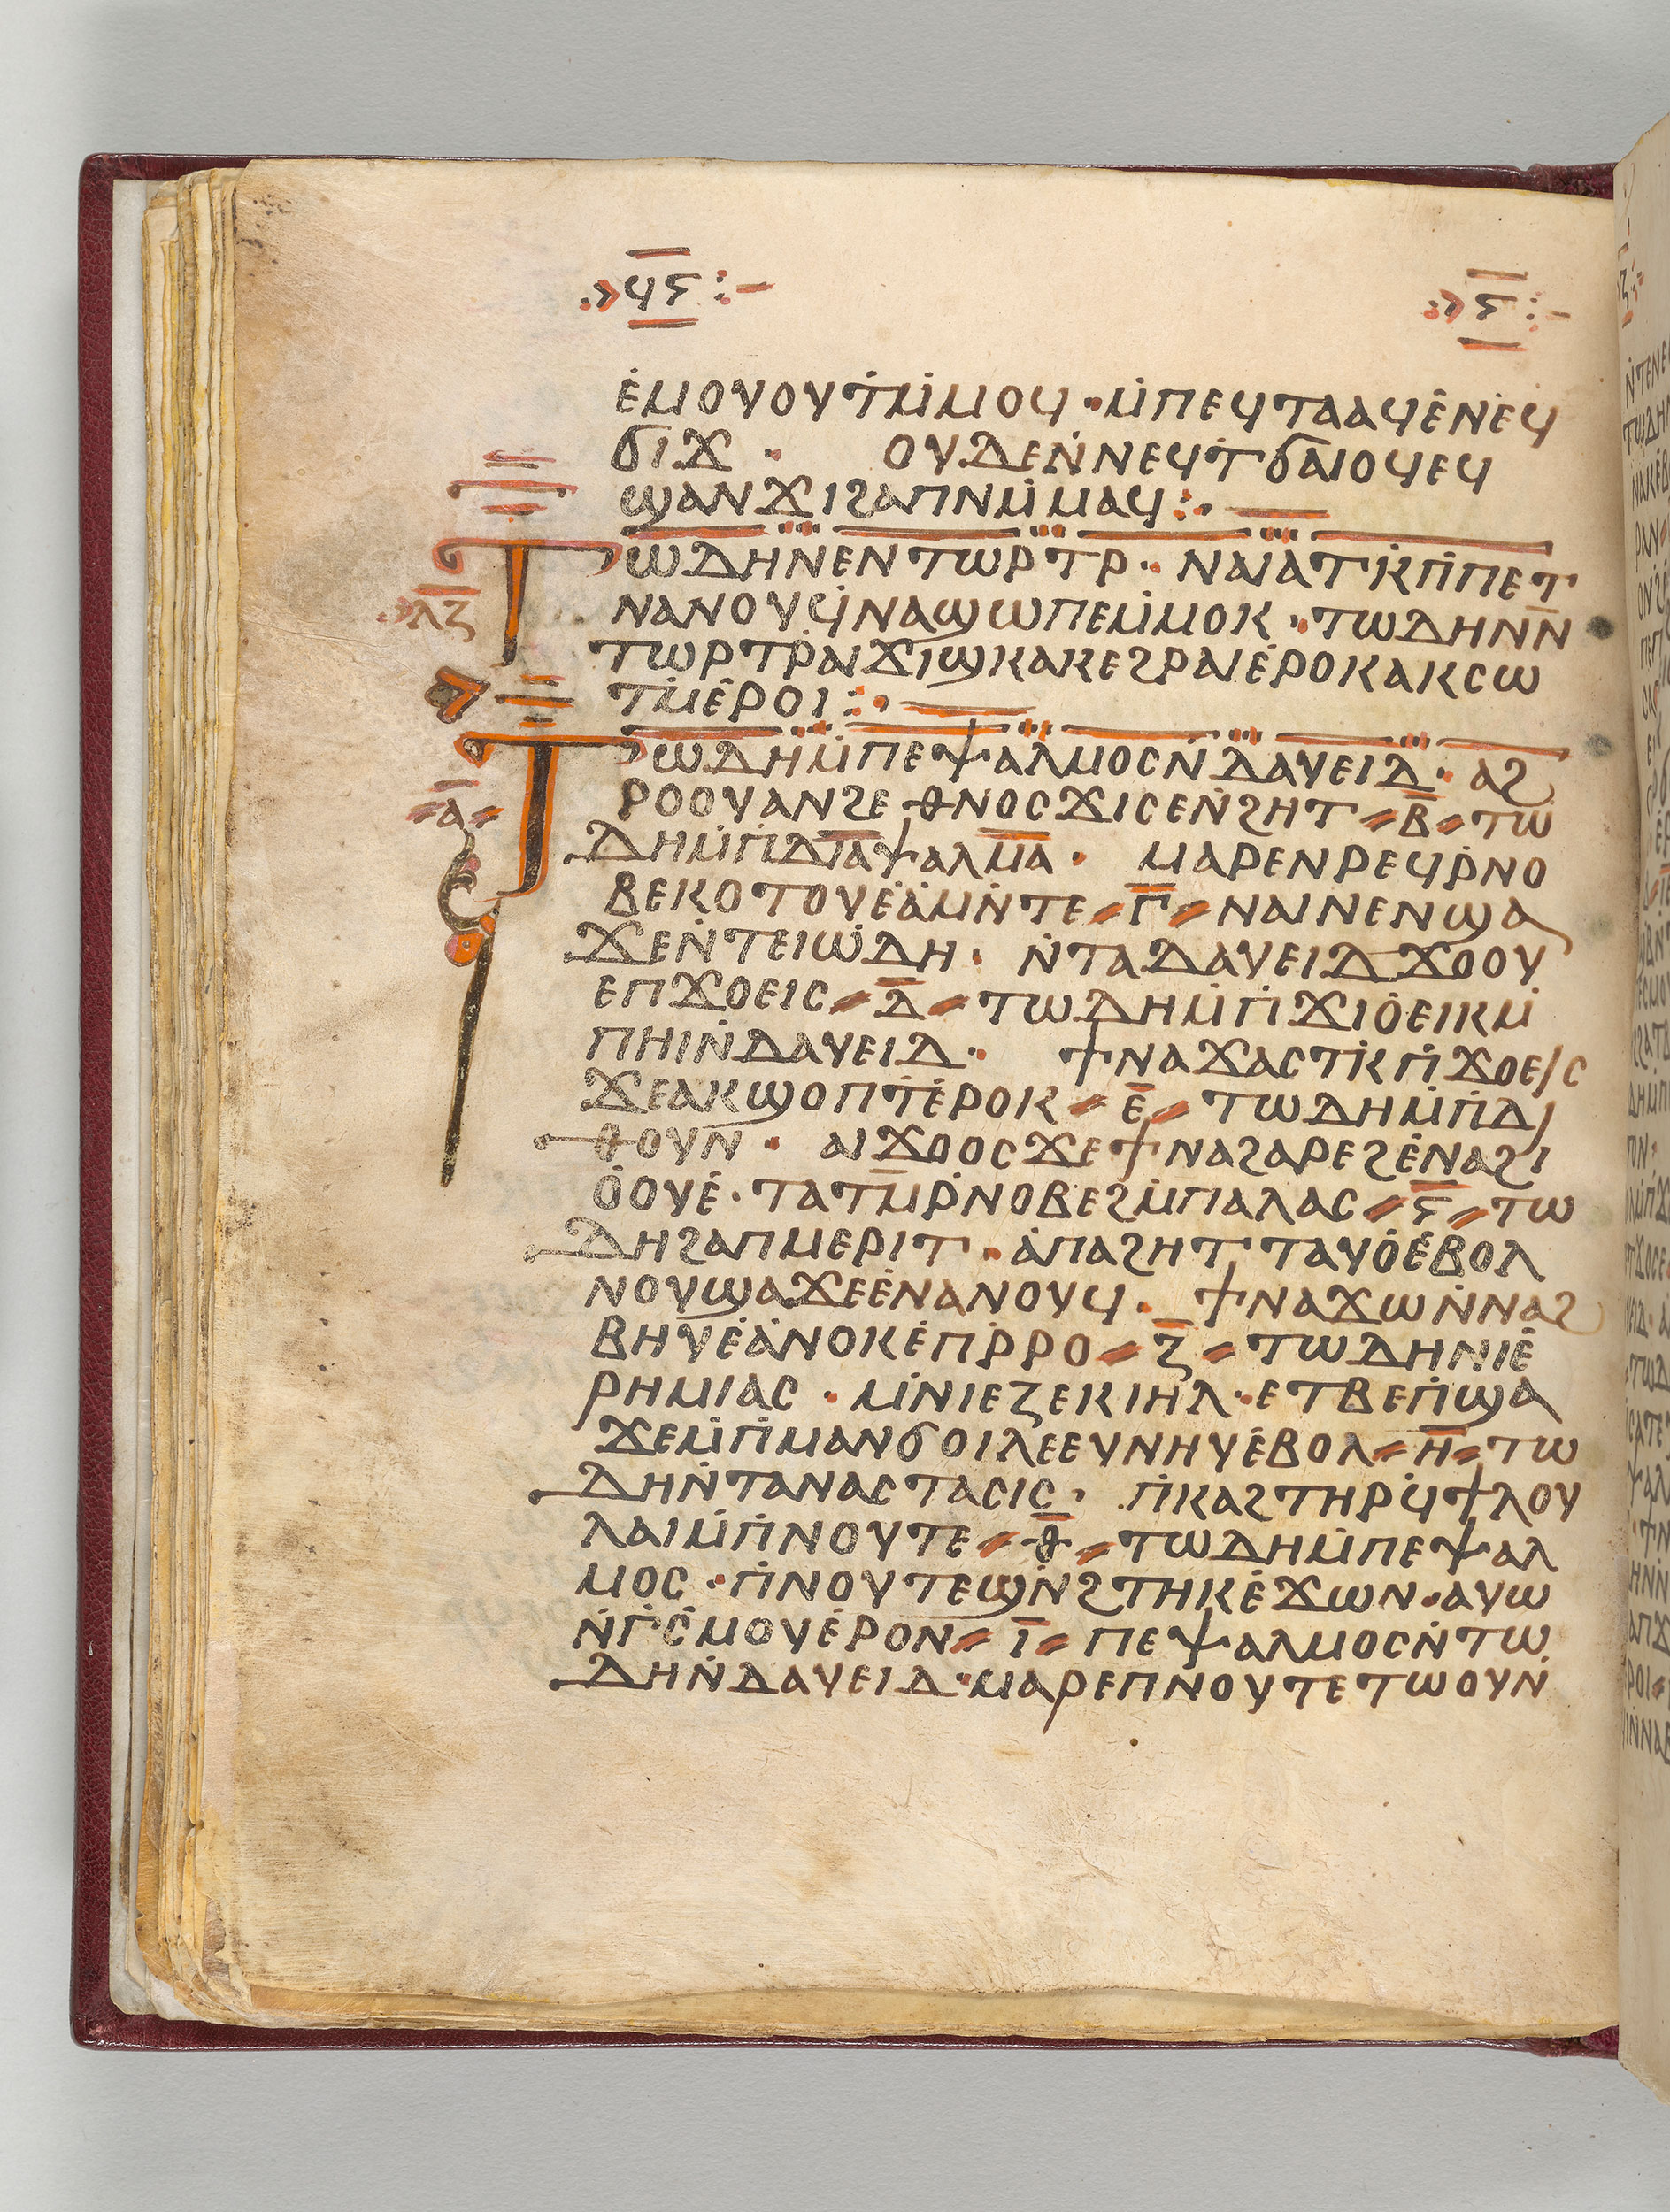 ϥⲋ ⲋ
ⲉ̇ⲙⲟⲩⲟⲩⲧⲙ̇ⲙⲟϥ · ⲙ̇ⲡⲉϥⲧⲁⲁϥⲉ̇ⲛⲉ̇ϥ
ϭⲓϫ · ⲟⲩⲇⲉⲛ̇ⲛⲉϥⲧϭⲁⲓⲟϥⲉϥ
ϣⲁⲛϫⲓϩⲁⲡⲛⲙ̇ⲙⲁϥ :·
ⲧⲱⲇⲏⲛ̇ⲉⲛⲧⲱⲣⲧⲣ · ⲛⲁⲓⲁⲧⲕ̇ⲡ̇ⲡⲉⲧ
ⲗⲍ
ⲛⲁⲛⲟⲩϥ̇ⲛⲁϣⲱⲡⲉⲙ̇ⲙⲟⲕ · ⲧⲱⲇⲏⲛⲛ̄
ⲧⲱⲣⲧⲣ̇ⲁⲓϫⲓϣⲕⲁⲕⲉϩⲣⲁⲓⲉ̇ⲣⲟⲕⲁⲕⲥⲱ
ⲧⲙ̇ⲉ̇ⲣⲟⲓ :·
ⲧⲱⲇⲏⲙ̇ⲡⲉⲯⲁⲗⲙⲟⲥⲛ̇ⲇⲁⲩⲉⲓⲇ · ⲁϩ
ⲁ̄
ⲣⲟⲟⲩⲁⲛϩⲉⲑⲛⲟⲥϫⲓⲥⲉⲛ̇ϩⲏⲧ ⲃ̄ ⲧⲱ
ⲇⲏⲙ̇ⲡ̇ⲇⲓ̄ⲁ̄ⲯⲁⲗⲙ̄ⲁ̄ · ⲙⲁⲣⲉⲛⲣⲉϥⲣ̇ⲛⲟ
ⲃⲉⲕⲟⲧⲟⲩⲉ̇ⲁ̇ⲙⲛ̇ⲧⲉ ⲅ̄ ⲛⲁⲓⲛⲉⲛϣⲁ
ϫⲉⲛ̇ⲧⲉⲓⲱ̇ⲇⲏ · ⲛ̇ⲧⲁⲇⲁⲩⲉⲓⲇϫⲟⲟⲩ
ⲉⲡϫⲟⲉⲓⲥ ⲇ̄ ⲧⲱⲇⲏⲙ̇ⲡ̇ϫⲓⲟ̇ⲉⲓⲕⲙ̇
ⲡⲏⲓⲛ̇ⲇⲁⲩⲉⲓⲇ · ϯⲛⲁϫⲁⲥⲧⲕ̇ⲡ̇ϫⲟⲉⲓⲥ
ϫⲉⲁⲕϣⲟⲡⲧ̇ⲉ̇ⲣⲟⲕ ⲉ̄ ⲧⲱⲇⲏⲙ̇ⲡ̇ⲇⲓ
ⲑⲟⲩⲛ · ⲁⲓϫⲟⲟⲥϫⲉϯⲛⲁϩⲁⲣⲉϩⲉ̇ⲛⲁϩⲓ
ⲟ̇ⲟⲩⲉ̇ · ⲧⲁⲧⲙ̄ⲣ̇ⲛⲟⲃⲉϩⲙ̇ⲡⲁⲗⲁⲥ ⲋ̄ ⲧⲱ
ⲇⲏϩⲁⲡⲙⲉⲣⲓⲧ · ⲁ̇ⲡⲁϩⲏⲧⲧⲁⲩⲟ̇ⲉ̇ⲃⲟⲗ
ⲛⲟⲩϣⲁϫⲉⲉ̇ⲛⲁⲛⲟⲩϥ · ϯⲛⲁϫⲱⲛ̇ⲛⲁϩ
ⲃⲏⲩⲉ̇ⲁ̇ⲛⲟⲕⲉ̇ⲡⲣ̇ⲣⲟ ⲍ̄ ⲧⲱⲇⲏⲛⲓⲉ̇
ⲣⲏⲙⲓⲁⲥ · ⲙⲛ̇ⲓⲉⲍⲉⲕⲓⲏⲗ · ⲉⲧⲃⲉⲡ̇ϣⲁ
ϫⲉⲙ̇ⲡ̇ⲙⲁⲛϭⲟⲓⲗⲉⲉⲩⲛⲏⲩⲉ̇ⲃⲟⲗ ⲏ̄ ⲧⲱ
ⲇⲏⲛ̇ⲧⲁⲛⲁⲥⲧⲁⲥⲓⲥ · ⲡ̇ⲕⲁϩⲧⲏⲣϥ̇ϯⲗⲟⲩ
ⲗⲁⲓⲙ̇ⲡ̇ⲛⲟⲩⲧⲉ ⲑ̄ ⲧⲱⲇⲏⲙ̇ⲡⲉⲯⲁⲗ
ⲙⲟⲥ · ⲡ̇ⲛⲟⲩⲧⲉϣⲛ̇ϩⲧⲏⲕⲉ̇ϫⲱⲛ · ⲁⲩⲱ
ⲛ̇ⲅ̇ⲥ̇ⲙⲟⲩⲉ̇ⲣⲟⲛ ⲓ̄ ⲡⲉⲯⲁⲗⲙⲟⲥⲛ̇ⲧⲱ
ⲇⲏⲛ̇ⲇⲁⲩⲉⲓⲇ · ⲙⲁⲣⲉⲡⲛⲟⲩⲧⲉⲧⲱⲟⲩⲛ̇